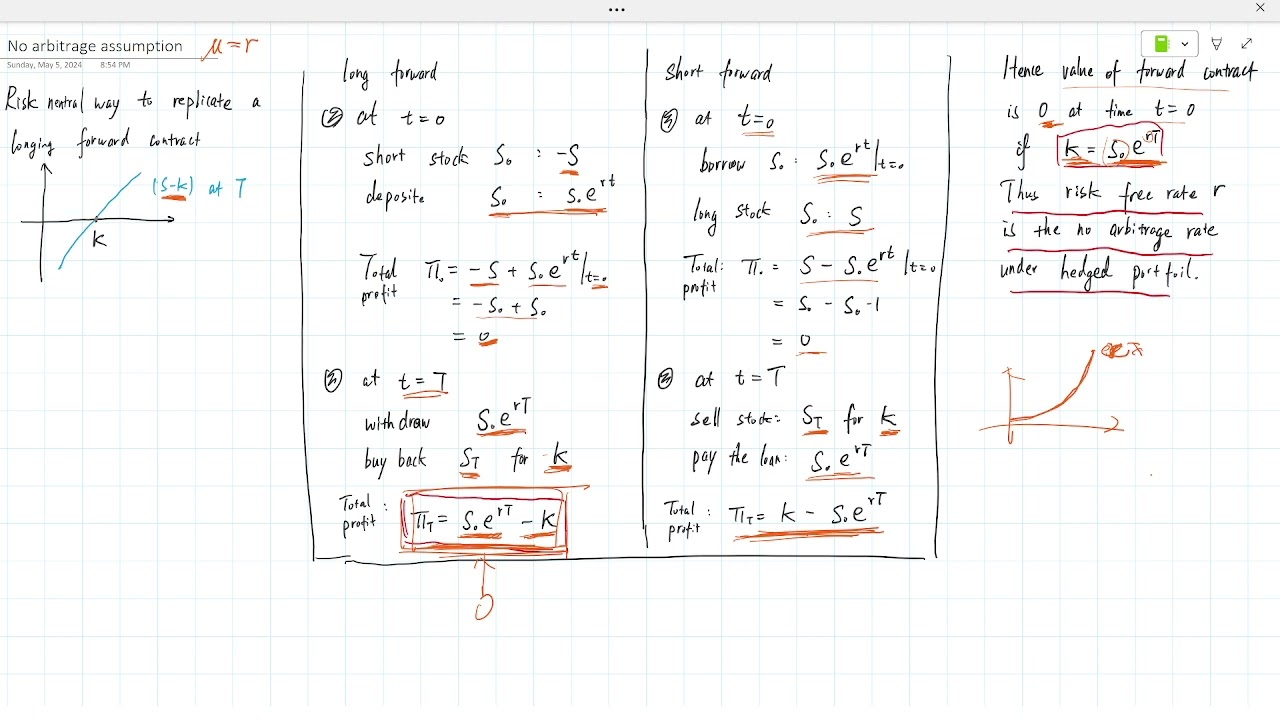 No arbitrage assumption
μ = r
Sunday, May 5, 2024 8:54 PM
Risk neutral way to replicate a
longing forward contract
(S-K) at T
K
long forward
at t=0
short stock S₀ : -S
deposite S₀ : S₀e^rt
Total profit Π₀ = -S + S₀e^rt|t=0
= -S₀ + S₀
= 0
② at t = T
withdraw S₀e^rT
buy back S_T for K
Total profit : Π_T = S₀e^rT - K
0
Short forward
at t=0
borrow S₀ : S₀e^rt|t=0
long stock S₀ : S
Total: profit Π₀ = S - S₀e^rt|t=0
= S₀ - S₀·1
= 0
② at t = T
sell stock: S_T for K
pay the loan: S₀e^rT
Total profit : Π_T = K - S₀e^rT
Hence value of forward contract
is 0 at time t=0
if K = S₀e^rT
Thus risk free rate r
is the no arbitrage rate
under hedged portfoil.